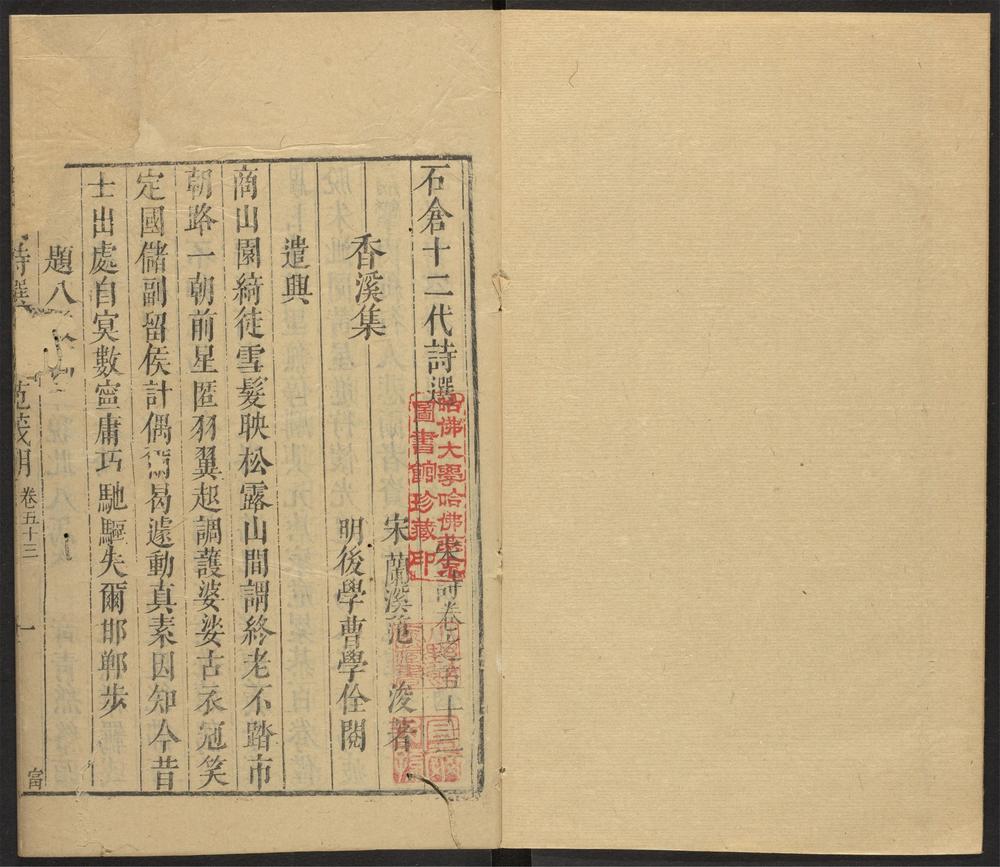 石倉十二代詩選
宋詩卷之五十三
哈佛大學哈佛
圖書館珍藏印
香溪集
宋蘭溪范浚著
明後學曹學佺閱
遣興
商山園綺徒雪髮映松露山間謂終老不踏市
朝路一朝前星匿羽翼起調護婆娑古衣冠笑
定國儲副留侯計偶爾曷遽動真素因知今昔
士出處自冥數寧庸巧馳驅失爾邯鄲步
題八
詩選
范茂明
卷五十三
一
富